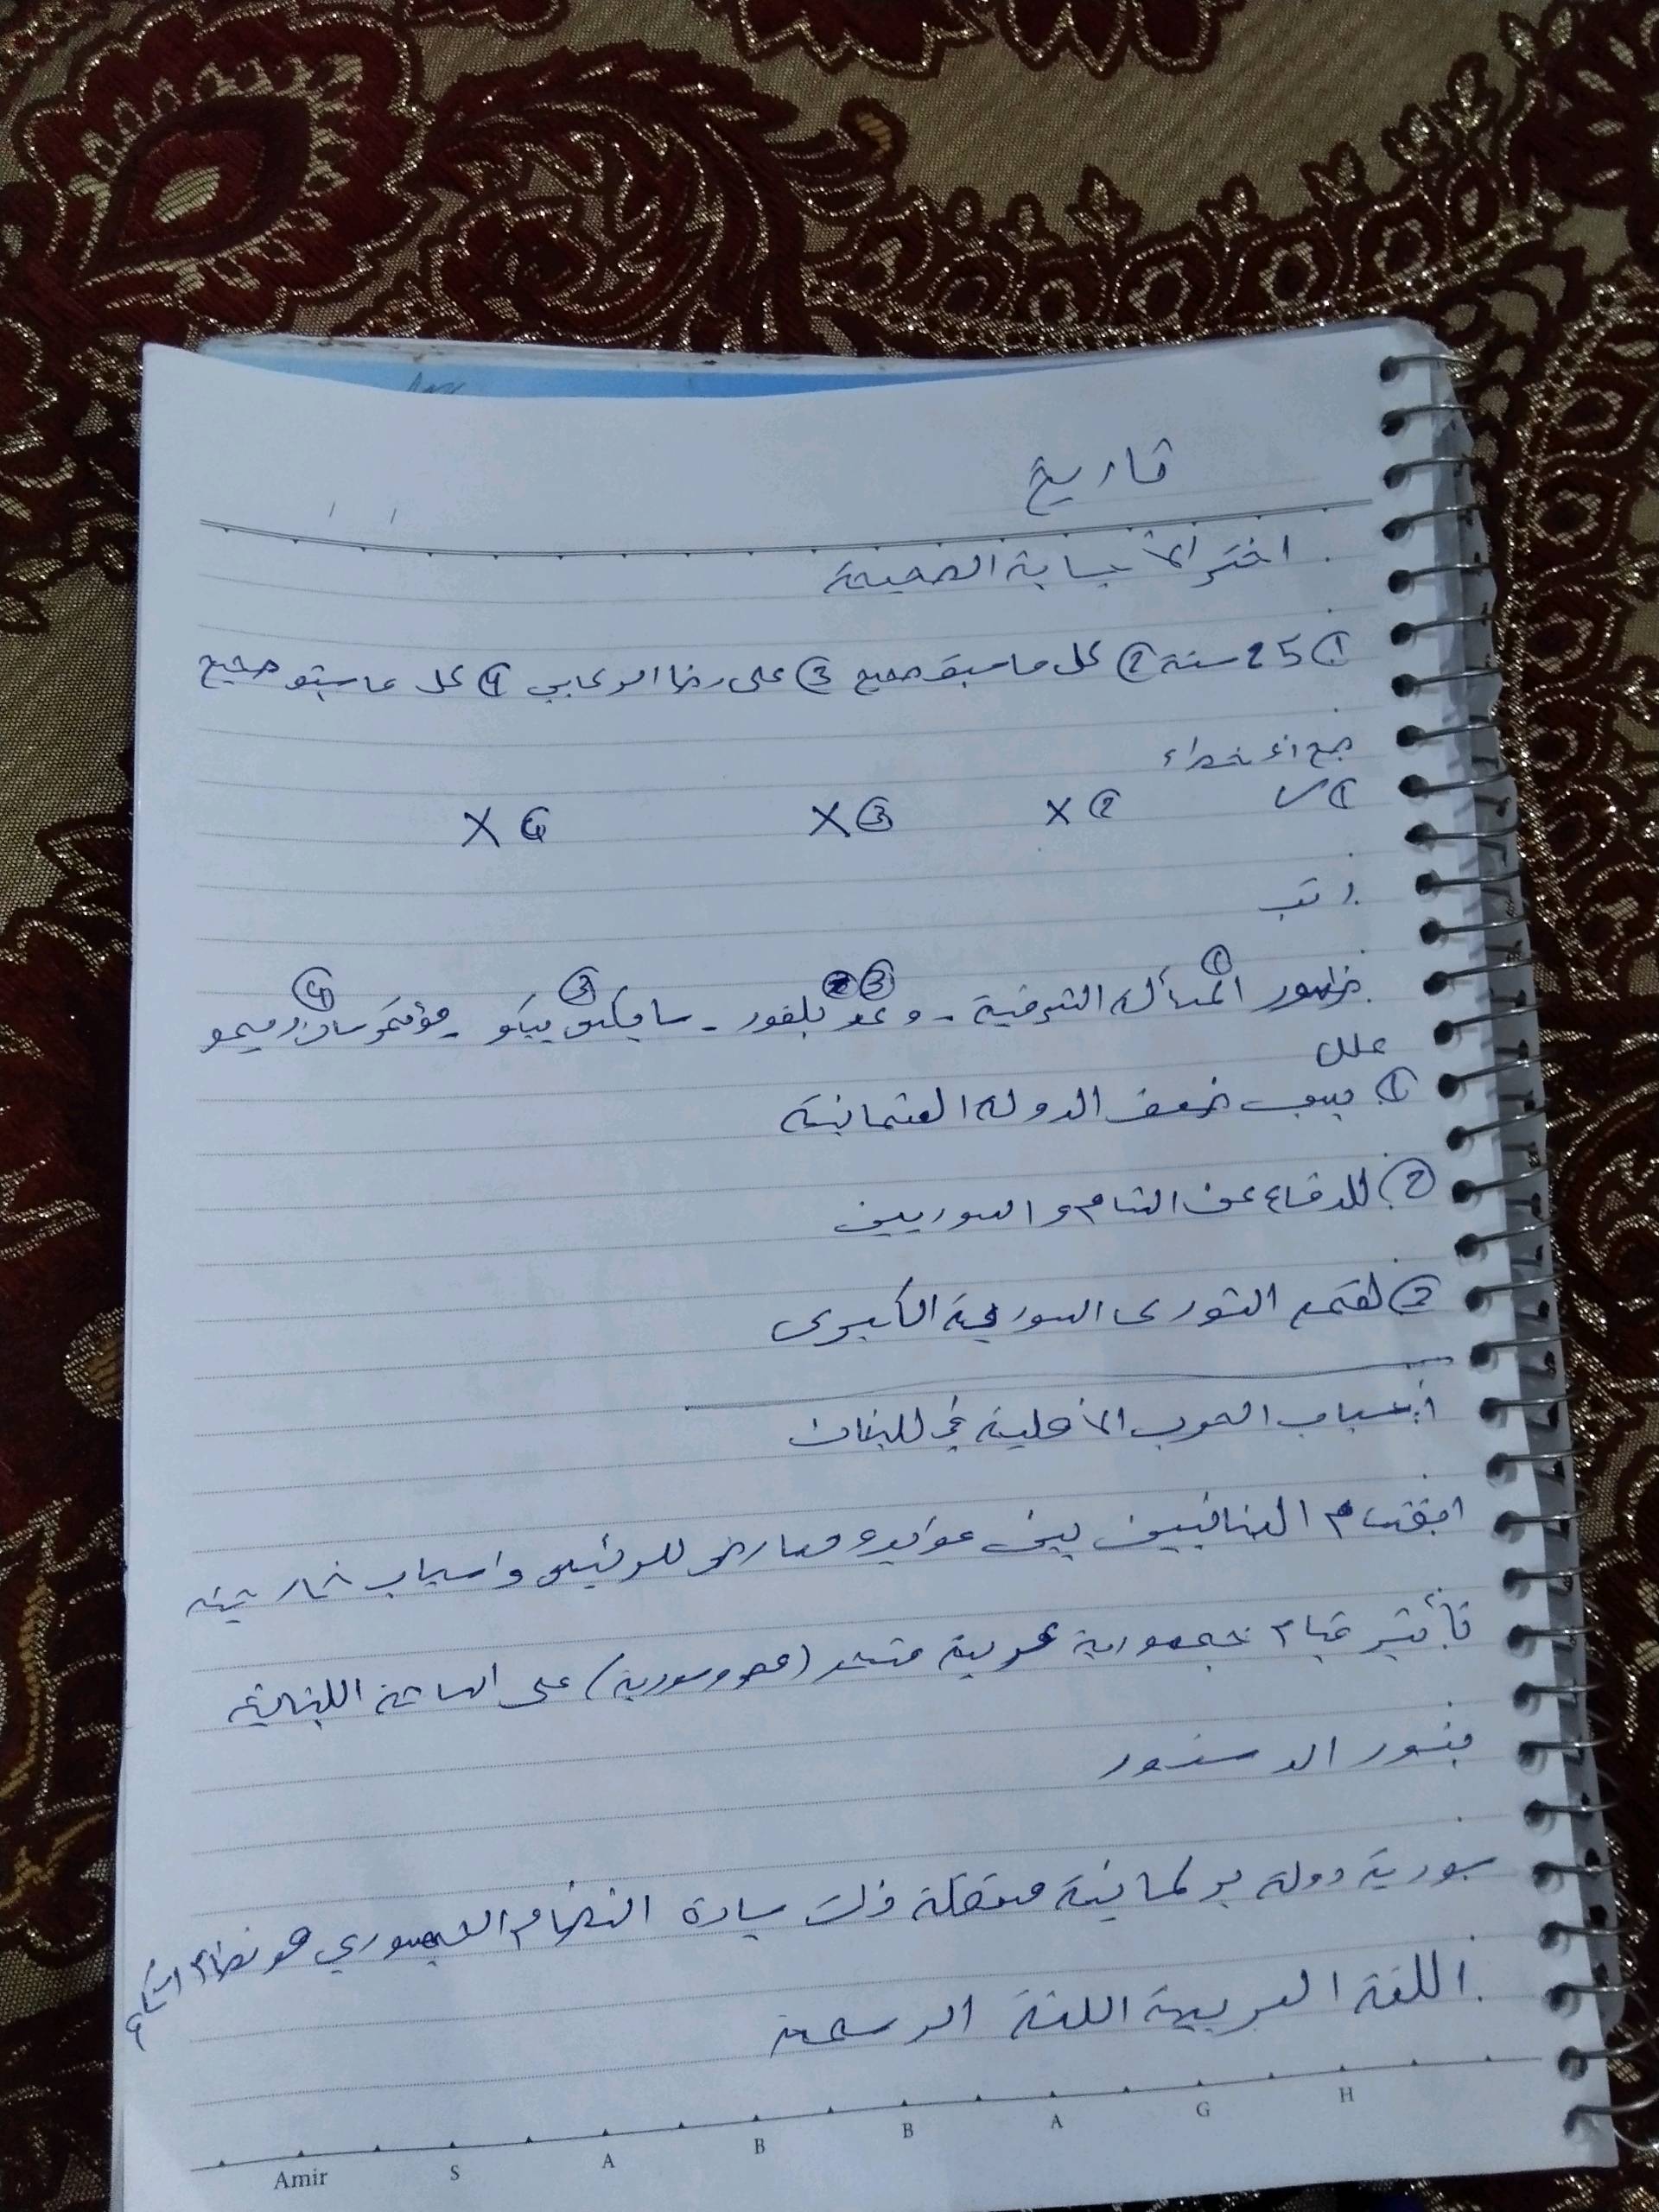 تاريخ
اختر الأجابة الصحيحة
① 25 سنة ② كل ما سبق صحيح ③ علي رضا الركابي ④ كل ما سبق صحيح
صح أو خطاء
① ✓ ② X ③ X ④ X
رتب
① ③ ③ ④
ظهور المسألة الشرقية - وعد بلفور - سايكس بيكو - مؤتمر سان ريمو
علل
① بسبب ضعف الدولة العثمانية
② للدفاع عن الشام و السوريين
③ لقمع الثورى السورية الكبرى
أسباب الحرب الأهلية في للبنان
انقسام البنانيين بين مؤيد و معارض للرئيس واسباب خارجية
تأثير قيام جمهورية عربية متحد (مصر وسورية) على الساحة اللبنانية
بنود الدستور
سورية دولة برلمانية مستقلة ذات سيادة النظام الجمهوري هو نظام الحكم
اللغة العربية اللغة الرسمية
Amir S A B B A G H